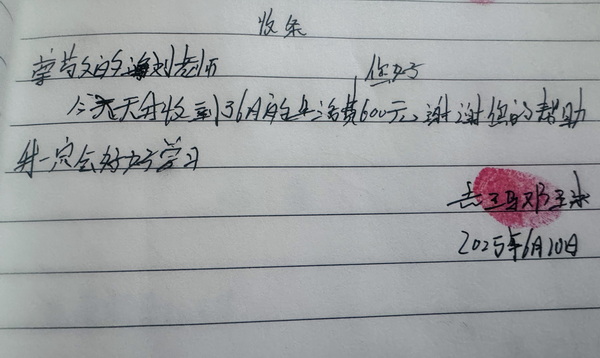 收条
刘老师 您好
今天我收到了6月的生活费600元,谢谢您的帮助
我一定会好好学习
2025年6月10日